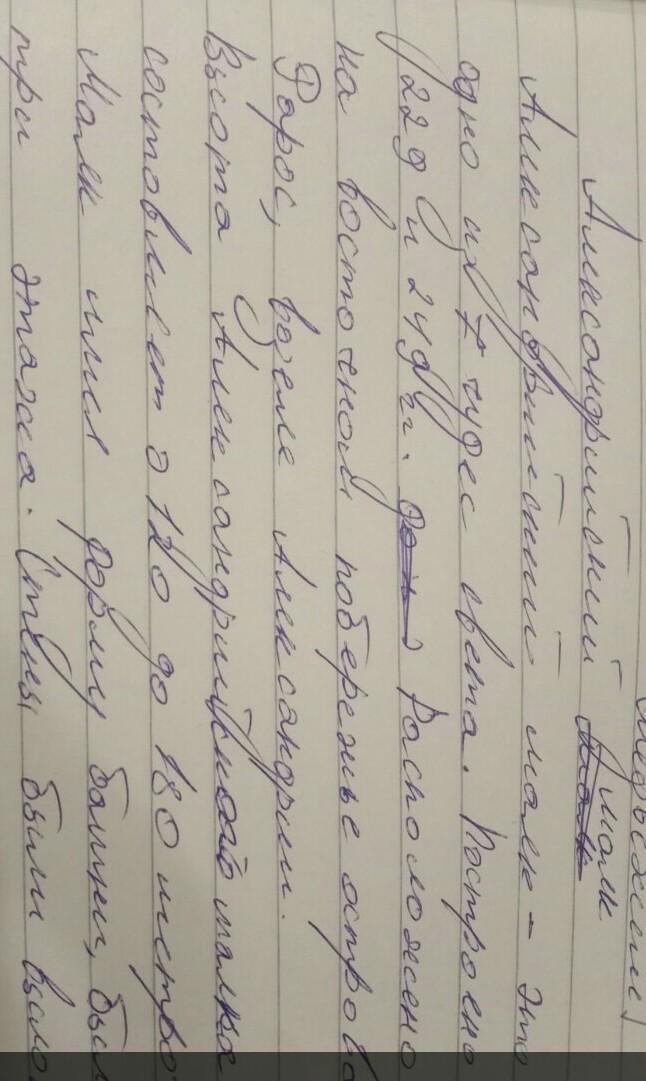 Александрийский маяк
Александрийский маяк - это
одно из 7 чудес света. Построено
229 и 249 гг. Расположено
на восточном побережье острова
Фарос, возле Александрии.
Высота Александрийского маяка
составляет э 120 до 180 метров
Маяк имел форму башни, был
три этажа. Стены были выло